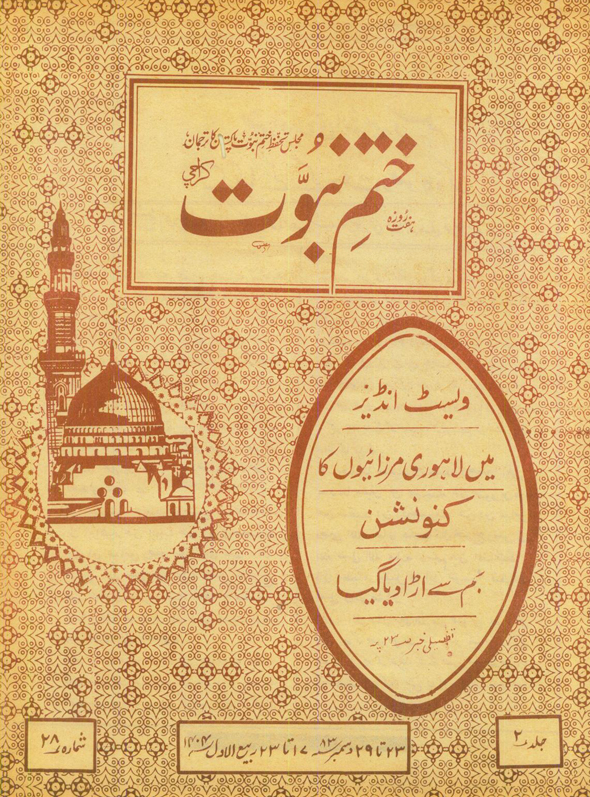 مجلس تحفظ ختم نبوت پاکستان کا ترجمان
کراچی
ہفت روزہ
ختم نبوّت
ویسٹ انڈیز
میں لاہوری مرزائیوں کا
کنونشن
بم سے اڑا دیا گیا
تفصیلی خبر صہ ۲۲ پر
جلد ۲
۲۳ تا ۲۹ دسمبر ۸۳ ۱۷ تا ۲۳ ربیع الاول ۱۴۰۴
شمارہ ۲۸